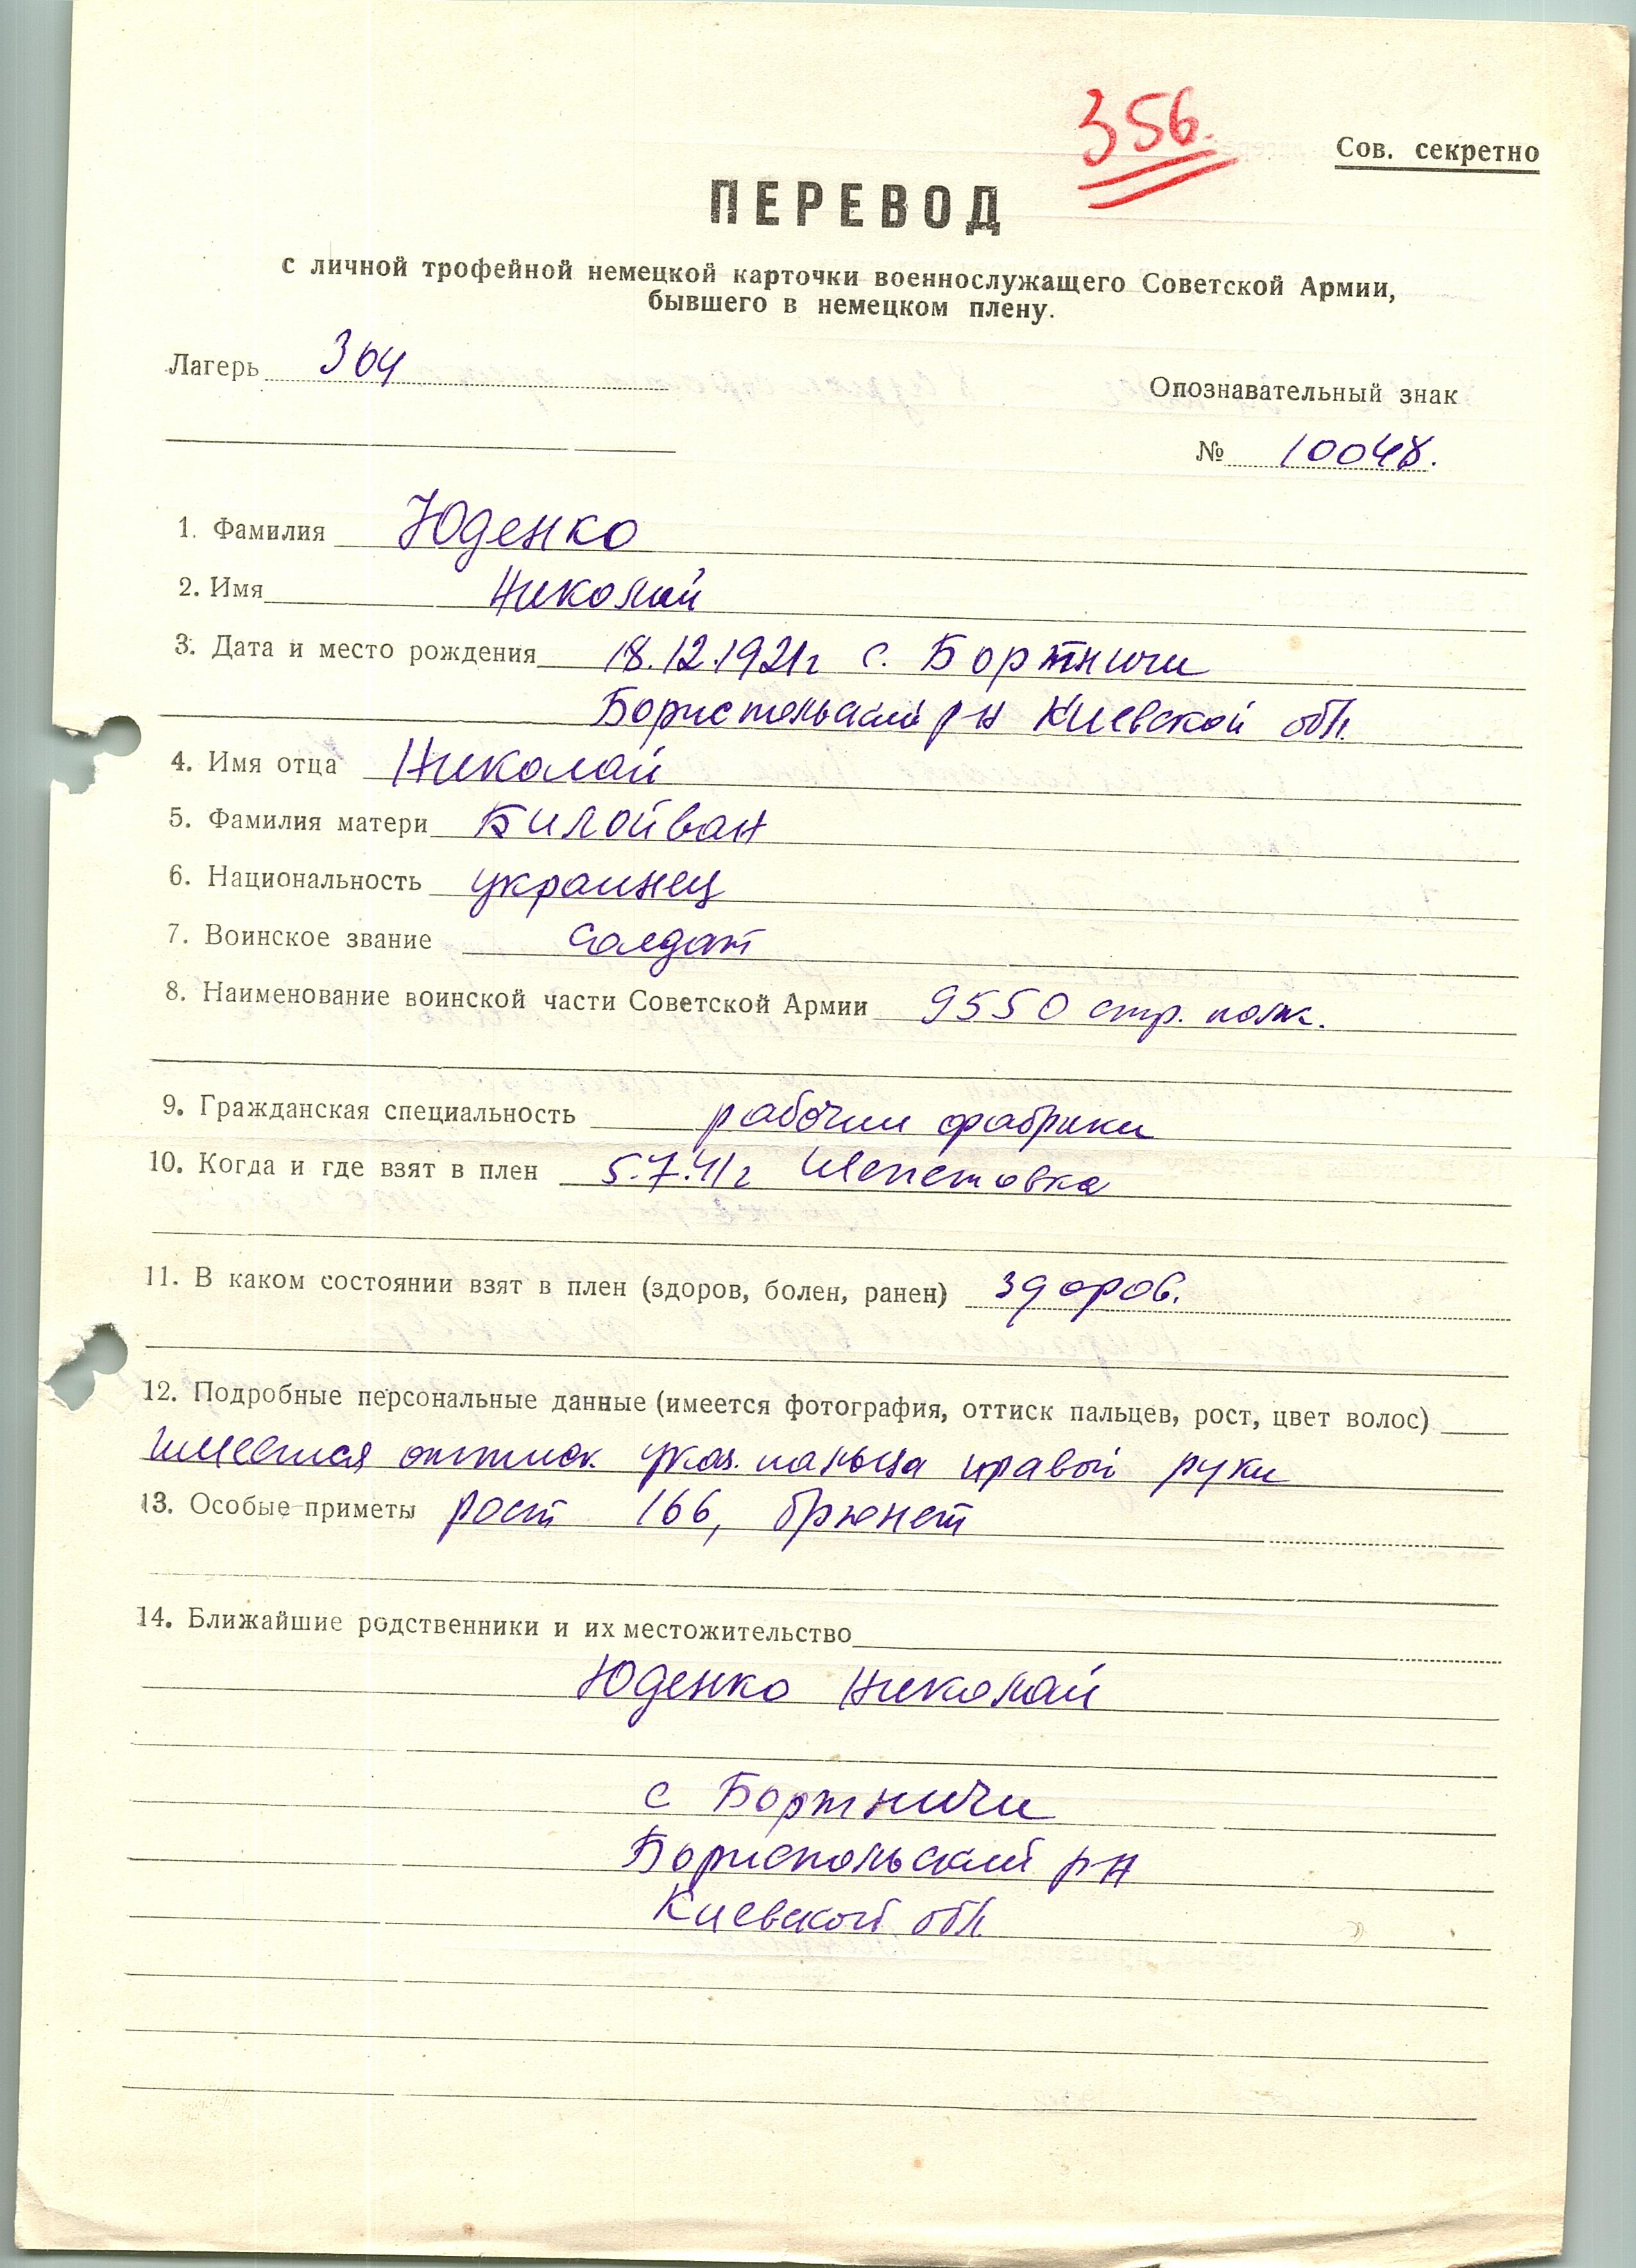 356.
Сов. секретно
ПЕРЕВОД
с личной трофейной немецкой карточки военнослужащего Советской Армии,
бывшего в немецком плену.
Лагерь 304
Опознавательный знак
№ 10048.
1. Фамилия Юденко
2. Имя Николай
3. Дата и место рождения 18.12.1921г с. Бортничи
Бориспольский рн Киевской обл.
4. Имя отца Николай
5. Фамилия матери Билойван
6. Национальность украинец
7. Воинское звание солдат
8. Наименование воинской части Советской Армии 9550 стр. полк.
9. Гражданская специальность рабочий фабрики
10. Когда и где взят в плен 5.7.41г Шепетовка
11. В каком состоянии взят в плен (здоров, болен, ранен) здоров.
12. Подробные персональные данные (имеется фотография, оттиск пальцев, рост, цвет волос)
имеется оттиск указ. пальца правой руки
13. Особые приметы рост 166, брюнет
14. Ближайшие родственники и их местожительство
Юденко Николай
с Бортничи
Бориспольский рн
Киевской обл.